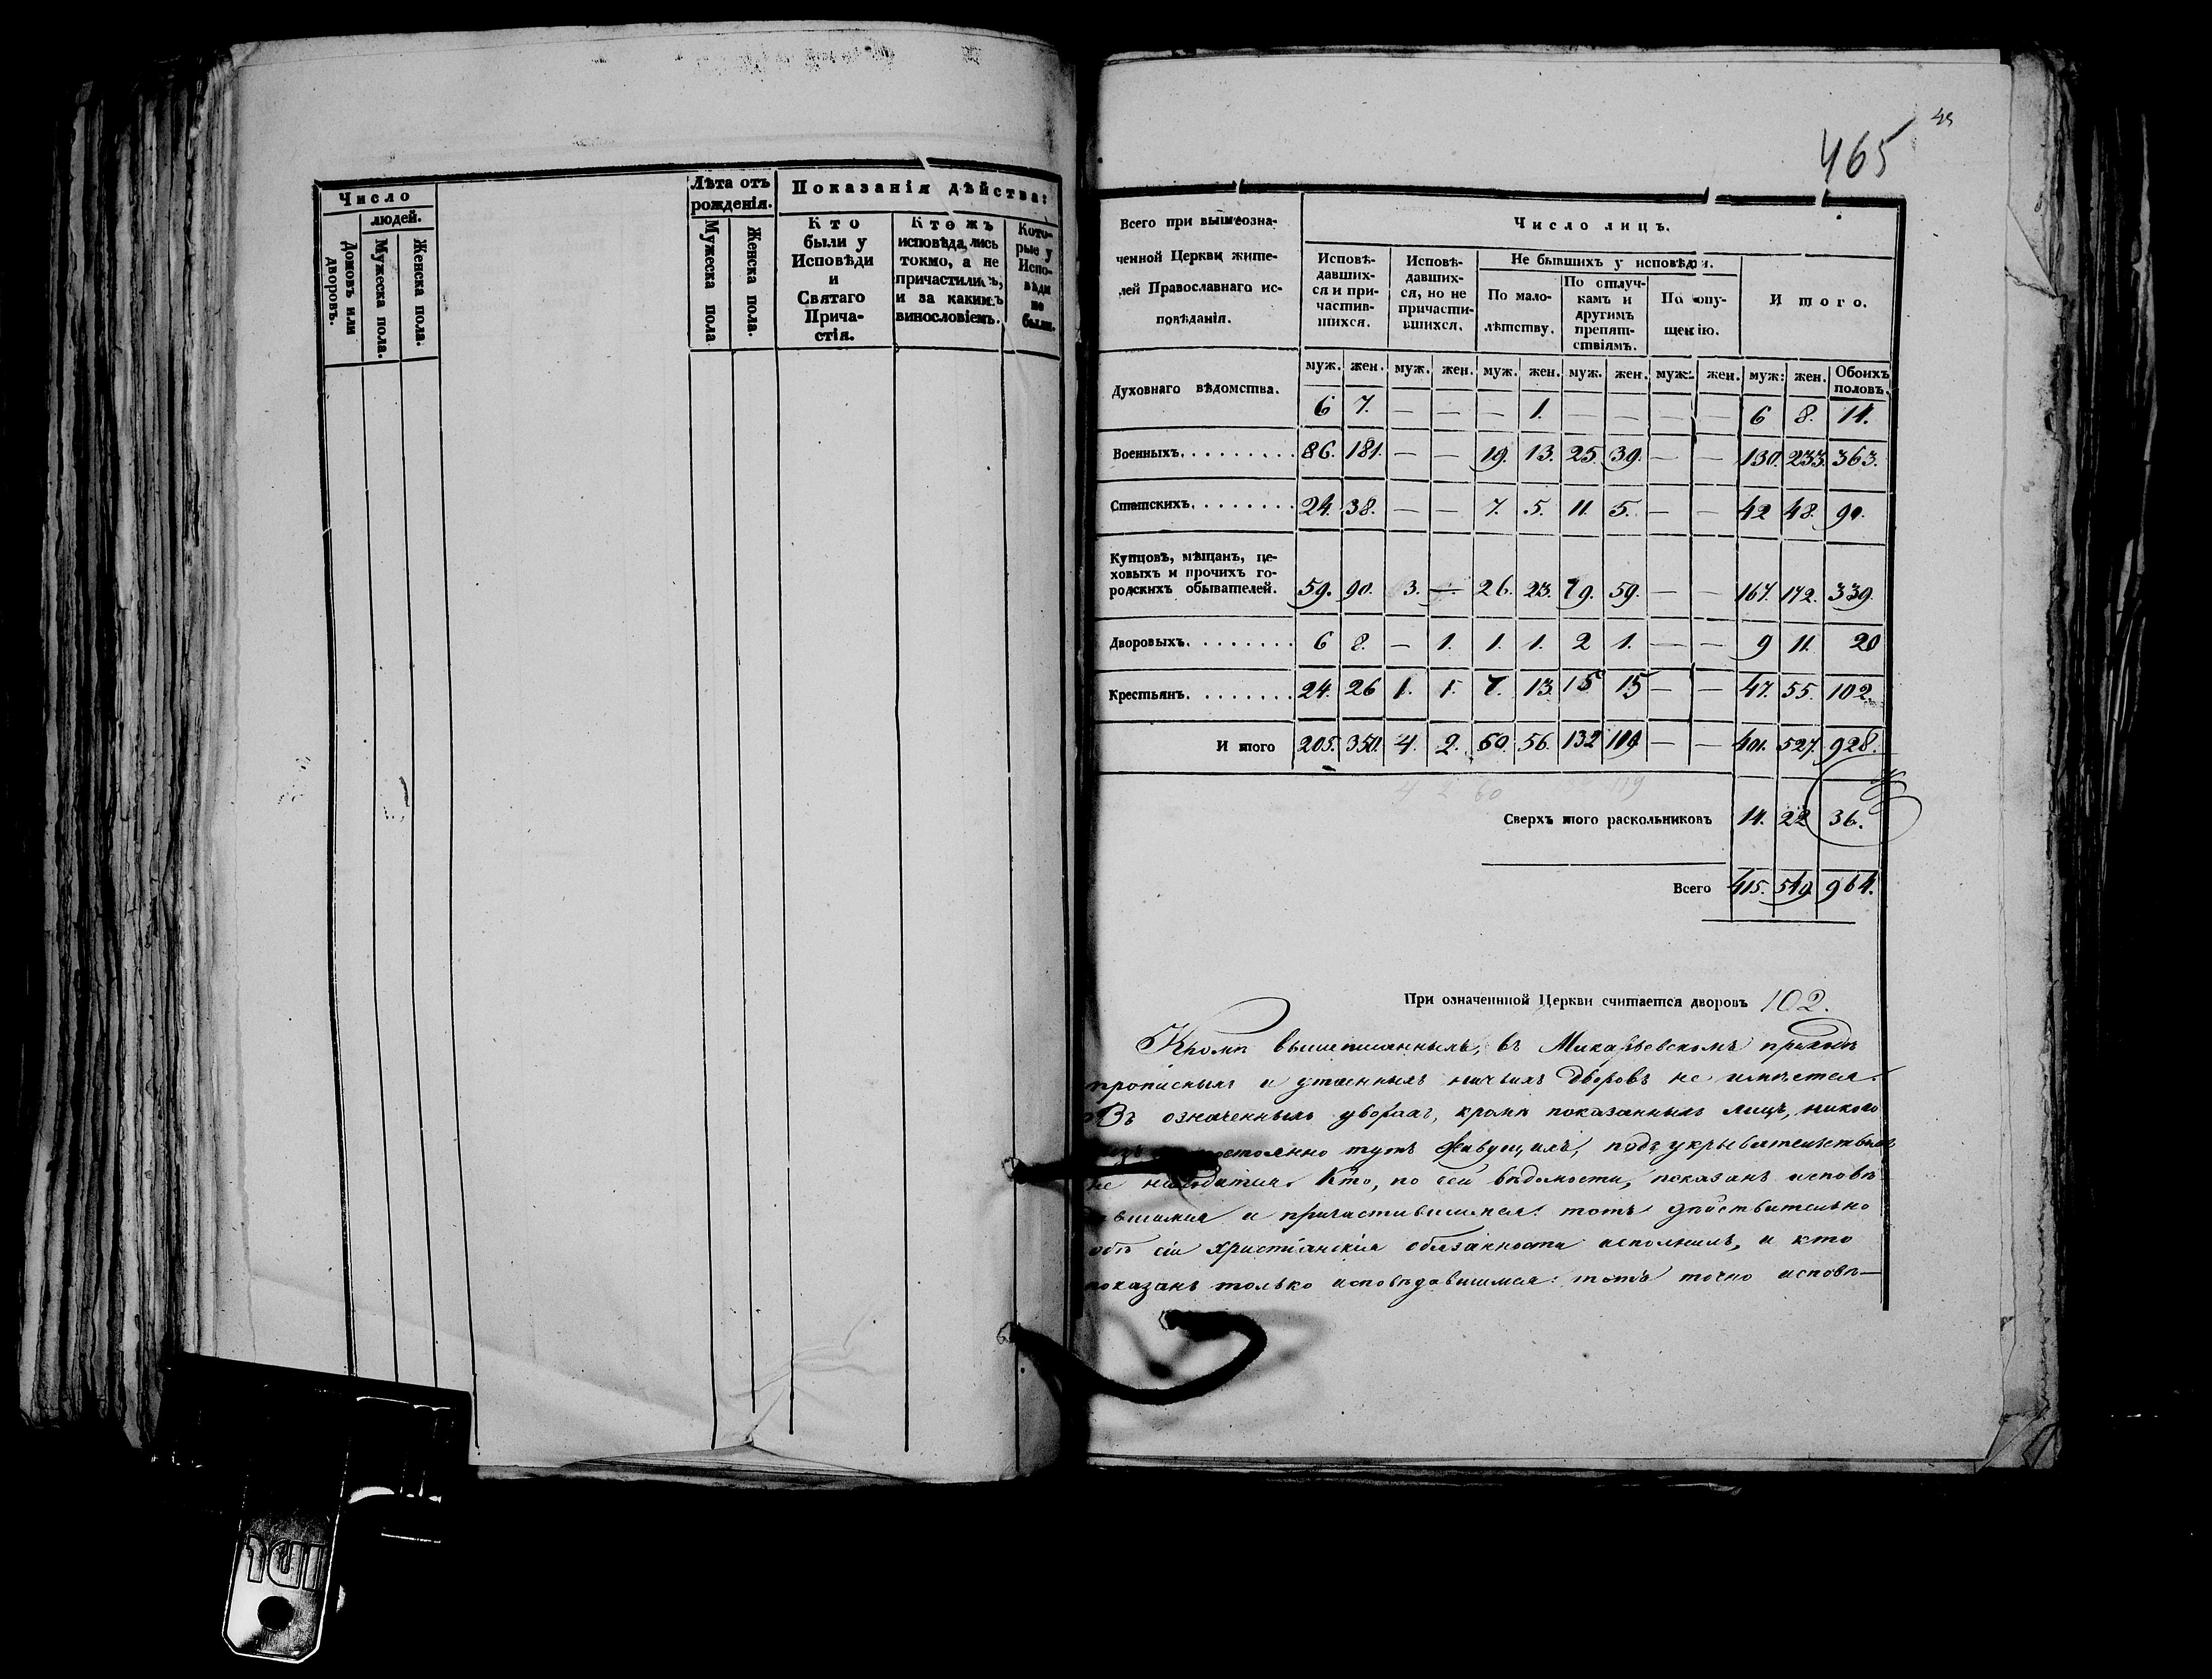 Число
людей.
Домовъ или дворовъ.
Мужеска пола.
Женска пола.
Лѣта отъ рожденія.
Мужеска пола
Женска пола.
Показанія дѣйства:
Кто
были у
Исповѣди
и
Святаго
Прича-
стія.
Ктожъ
исповѣдались
токмо, а не
причастились,
и за какимъ
винословіемъ.
Кото-
рые у
Испо-
вѣди
не
были.
49
465
Всего при вышеозна-
ченной Церкви жите-
лей Православнаго ис-
повѣданія.
Число лицъ.
Исповѣ-
давших-
ся и при-
частив-
шихся.
Исповѣ-
давших-
ся, но не
причасти-
вшихся.
Не бывшихъ у исповѣди.
По мало-
лѣтству.
По отлуч-
камъ и
другимъ
препят-
ствіямъ.
По опу-
щенію.
Итого.
муж. жен. муж. жен. муж. жен. муж. жен. муж. жен. муж: жен. Обоихъ половъ.
Духовнаго вѣдомства. 6 7. — — — 1. — — — — 6 8. 14.
Военныхъ. 86. 181. — — 19. 13. 25. 39. — — 130. 233. 363.
Статскихъ. 24. 38. — — 7. 5. 11. 5. — — 42 48. 90.
Купцовъ, мѣщанъ, це-
ховыхъ и прочихъ го-
родскихъ обывателей. 59. 90. 3. — 26. 23. 79. 59. — — 167. 172. 339.
Дворовыхъ. 6 8. — 1. 1. 1. 2 1. — — 9 11. 20
Крестьянъ. 24. 26 1. 1. 7. 13. 15 15 — — 47. 55. 102.
Итого 205. 350. 4. 2. 60. 56. 132 119 — — 401. 527. 928.
4 2 60 119
Сверхъ того раскольниковъ 14. 22 36.
Всего 415. 549. 964.
При означенной Церкви считается дворовъ 102.
Кромѣ вышеписанныхъ, въ Макарьевскомъ приходѣ
прописныхъ и утаенныхъ ничьихъ дворовъ не имѣется.
Въ означенныхъ дворахъ, кромѣ показанныхъ лицъ, никого
постоянно тутъ живущихъ, подъ укрывательствомъ
не находится. Кто, по сей вѣдомости, показанъ исповѣ
вшимся и причастившимся: тотъ дѣйствительно
обѣ сіи христіанскія обязанности исполнилъ, и кто
показанъ только исповѣдавшимся: тотъ точно исповѣ—